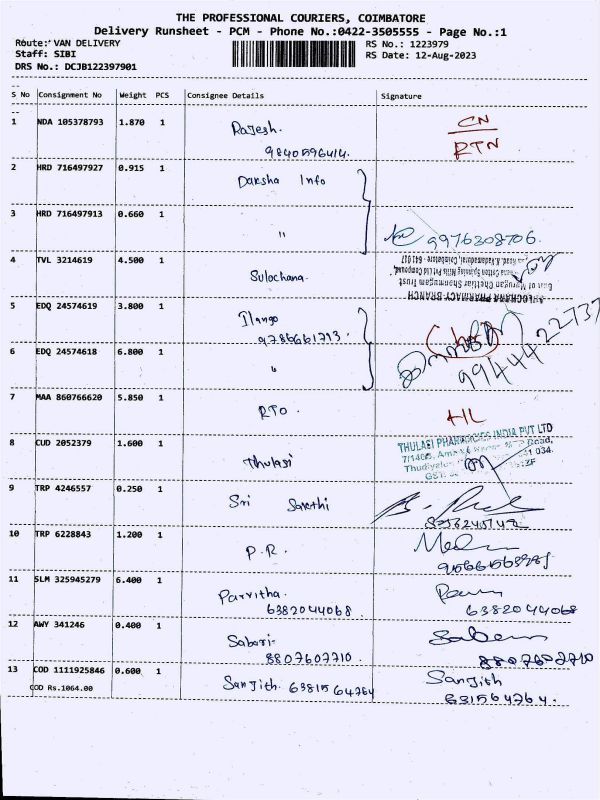 THE PROFESSIONAL COURIERS, COIMBATORE
Delivery Runsheet - PCM - Phone No.:0422-3505555 - Page No.:1
Route: VAN DELIVERY
RS No.: 1223979
Staff: SIBI
RS Date: 12-Aug-2023
DRS No.: DCJB122397901
S No Consignment No Weight PCS Consignee Details Signature
1 NDA 105378793 1.870 1 Rajesh. CN
9840596414. RTN
2 HRD 716497927 0.915 1 Daksha Info
3 HRD 716497913 0.660 1 "
9976208706.
4 TVL 3214619 4.500 1 Sulochana.
SULOCHANA PHARMACY-BRANCH
5 EDQ 24574619 3.800 1 Ilango
9786661713.
6 EDQ 24574618 6.800 1 "
9944422737
7 MAA 860766620 5.850 1 RTO.
THULASI PHARMACIES INDIA PVT LTD
8 CUD 2052379 1.600 1 Thulasi
9 TRP 4246557 0.250 1 Sri Sarathi
10 TRP 6228843 1.200 1 P.R.
11 SLM 325945279 6.400 1 Parvitha.
6382044068. 6382044068
12 AWY 341246 0.400 1 Sabari-
8807607710. 8807607710
13 COD 1111925846 0.600 1 Sanjith. 6381564764 Sanjith
COD Rs.1064.00 631564764.